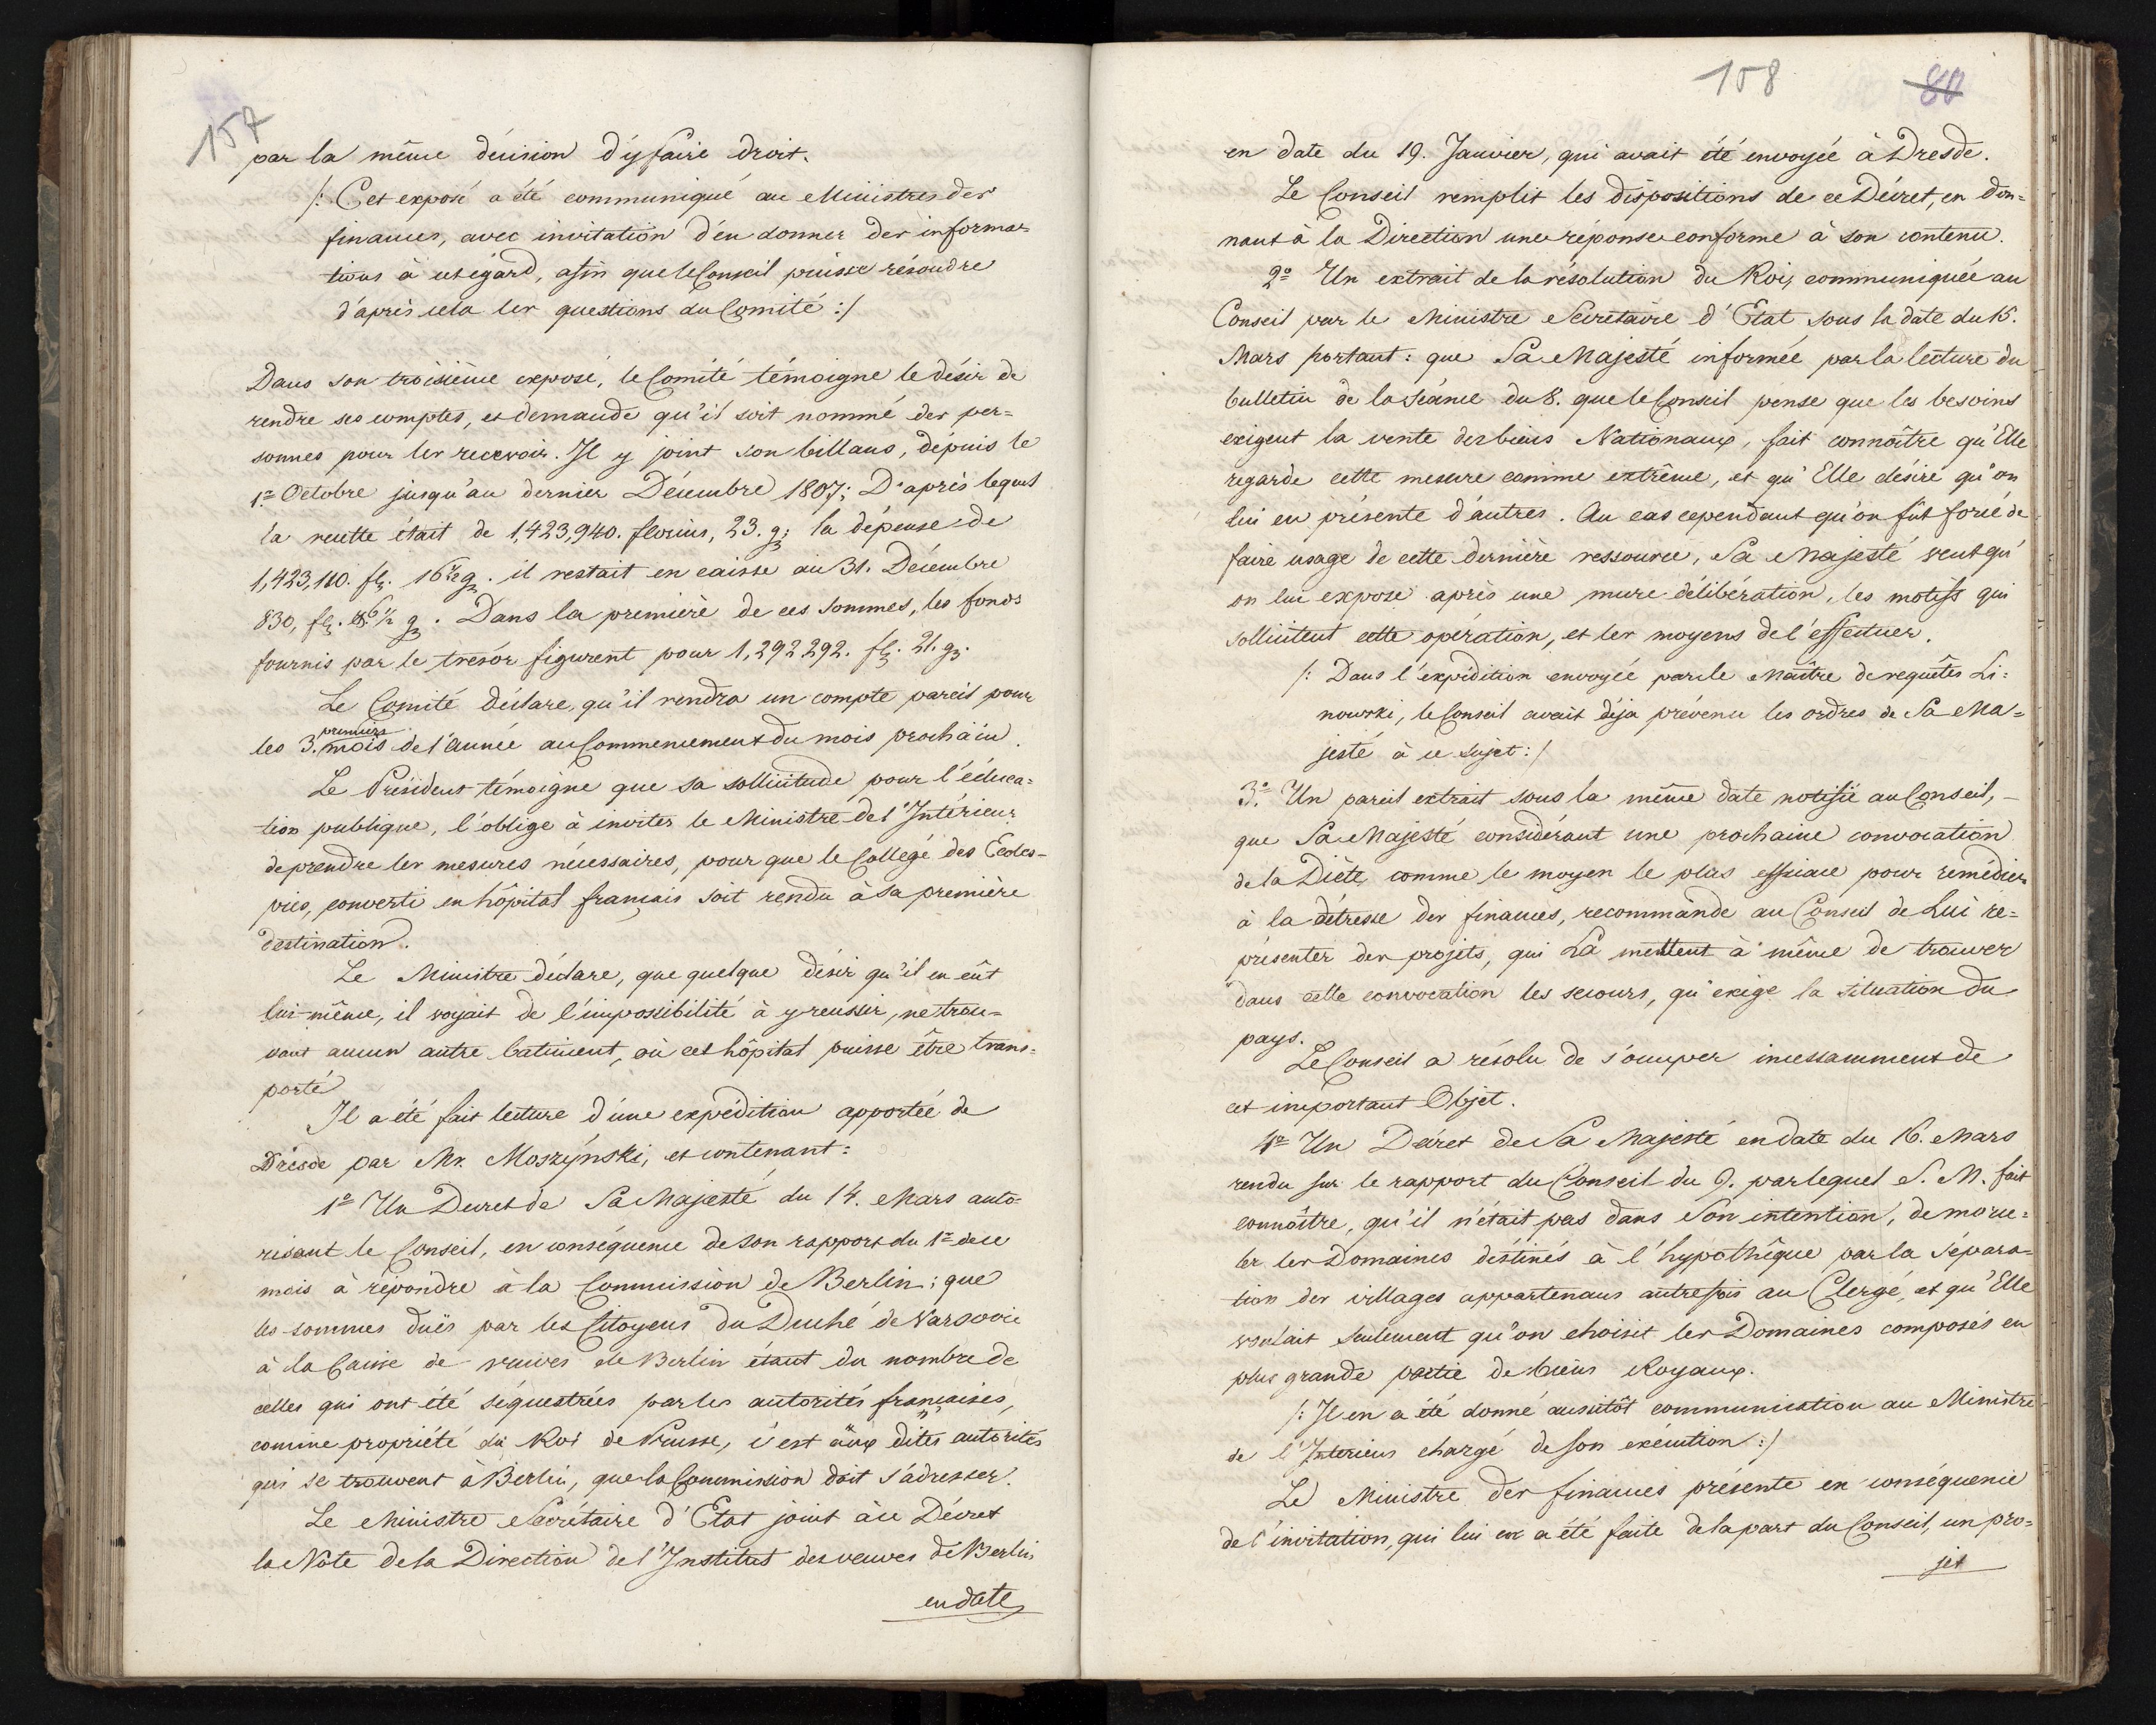 157
par la même décision d'y faire droit.
/: Cet exposé a été communiqué au Ministres des
finances, avec invitation d'en donner des informa-
tions à cet égard, afin que le Conseil puisse résoudre
d'après cela les questions du Comité :/
Dans son troisième exposé, le Comité témoigne le désir de
rendre ses comptes, et demande qu'il soit nommé des per=
sonnes pour les recevoir. Il y joint son billans, depuis le
1.er Octobre jusqu'au dernier Décembre 1807; D'après lequel
la recette était de 1,423,940. florins, 23. g; la dépense de
1,423,110. fl. 16½ g. il restait en caisse au 31. Décembre
830, fl. 6½ g. Dans la première de ces sommes, les fonds
fournis par le trésor figurent pour 1,292292. fl. 21. g.
Le Comité déclare, qu'il rendra un compte pareil pour
les 3. premiers mois de l'année au Commencement du mois prochain.
Le Président témoigne que sa sollicitude pour l'éduca=
tion publique, l'oblige à inviter le Ministre de l'Intérieur
de prendre les mesures nécessaires, pour que le Collège des Ecoles-
pies, converti en hôpital français soit rendu à sa première
destination.
Le Ministre déclare, que quelque désir qu'il en eût
lui-même, il voyait de l'impossibilité à y reussir, ne trou=
vant aucun autre batiment, où cet hôpital puisse être trans=
porté
Il a été fait lecture d'une expédition apportée de
Drésde par Mr. Moszyński, et contenant:
1º Un Decret de Sa Majesté du 14. Mars auto-
risant le Conseil, en conséquence de son rapport du 1er de ce
mois à répondre à la Commission de Berlin; que
les sommes duës par les Citoyens du Duché de Varsovie
à la Caisse de veuves de Berlin étant du nombre de
celles qui ont été séquestrées par les autorités françaises,
comme propriété du Roi de Prusse, c'est aux dites autorités
qui se trouvent à Berlin, que la Commission doit s'adresser.
Le Ministre Secrétaire d'Etat joint à ce Décret
la Note de la Direction de l'Institut des veuves de Berlin
en date
158 80
en date du 19. Janvier, qui avait été envoyée à Dresde.
Le Conseil remplit les dispositions de ce Décret, en don=
nant à la Direction une réponse conforme à son contenu.
2º Un extrait de la résolution du Roi, communiquée au
Conseil par le Ministre Secrétaire d'Etat sous la date du 15.
Mars portant: que Sa Majesté informée par la lecture du
bulletin de la séance du 8. que le Conseil pense que les besoins
exigent la vente des biens Nationaux, fait connoître qu'Elle
regarde cette mesure comme extrême, et qu'Elle désire qu'on
lui en présente d'autres. Au cas cependant qu'on fût forcé de
faire usage de cette dernière ressource, Sa Majesté veut qu'
on lui expose après une mure délibération, les motifs qui
sollicitent cette opération, et les moyens de l'effectuer.
/: Dans l'expédition envoyée par le Maître de requêtes Li=
nowski, le Conseil avait déja prévenu les ordres de Sa Ma=
jesté à ce sujet :/
3º. Un pareil extrait sous la même date notifié au Conseil, -
que Sa Majesté considérant une prochaine convocation
de la Diète, comme le moyen le plus efficace pour remédier
à la détresse des finances, recommande au Conseil de Lui re=
présenter des projets, qui La mettent à même de trouver
dans cette convocation les secours, qu'exige la situation du
pays.
Le Conseil a résolu de s'occuper incessamment de
cet important Objet.
4º Un Décret de Sa Majesté en date du 16. Mars
rendu sur le rapport du Conseil du 9. par lequel S. M. fait
connoître, qu'il n'était pas dans Son intention, de morce=
ler les Domaines destinés à l'hypothêque par la sépara=
tion des villages appartenans autrefois au Clergé, et qu'Elle
voulait seulement qu'on choisit les Domaines composés en
plus grande partie de biens Royaux.
/: Il en a été donné aussitôt communication au Ministre
de l'Interieur chargé de son execution :/
Le Ministre des finances présente en conséquence
de l'invitation, qui lui en a été faite de la part du Conseil, un pro=
jet